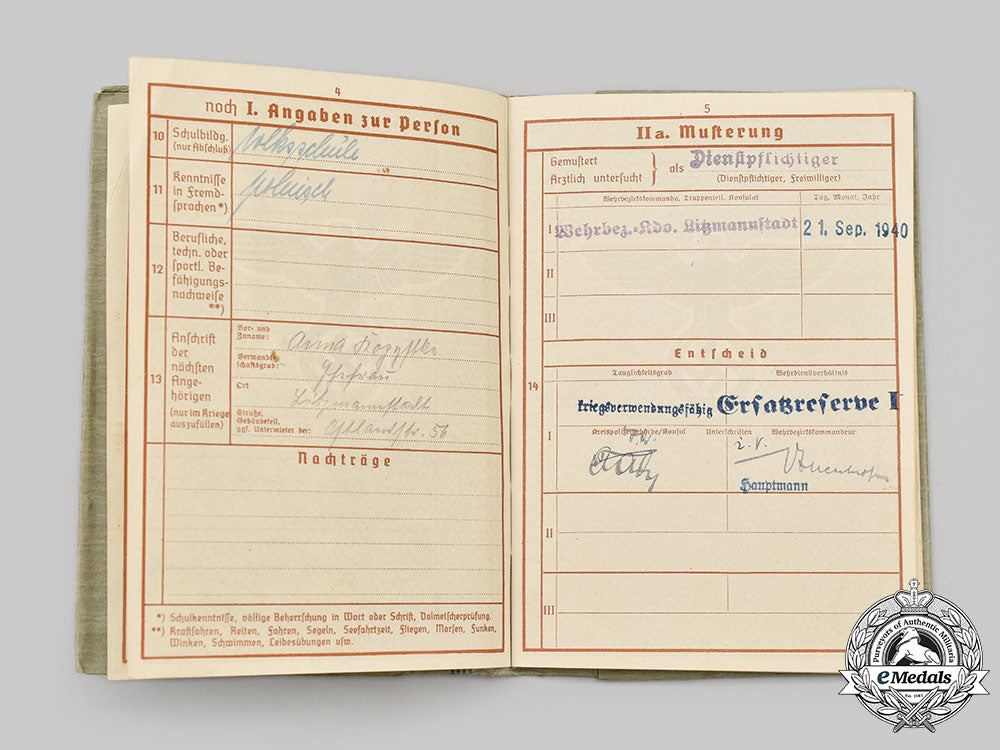 4
noch I. Angaben zur Person
10
Schulbildg.
(nur Abschluß)
Volksschule
11
Kenntnisse
in Fremd-
sprachen*)
polnisch
12
Berufliche,
techn. oder
sportl. Be-
fähigungs-
nachweise
**)
13
Anschrift
der
nächsten
Ange-
hörigen
(nur im Kriege
auszufüllen)
Vor- und
Zuname:
Anna
Verwandt-
schaftsgrad:
Ehefrau
Ort
Litzmannstadt
Straße,
Gebäudeteil,
ggf. Untermieter bei:
Ostlandstr. 56
Nachträge
*) Schulkenntnisse, völlige Beherrschung in Wort oder Schrift, Dolmetscherprüfung.
**) Kraftfahren, Reiten, Fahren, Segeln, Seefahrtzeit, Fliegen, Morsen, Funken,
Winken, Schwimmen, Leibesübungen usw.
5
II a. Musterung
Gemustert
Ärztlich untersucht } als Dienstpflichtiger
(Dienstpflichtiger, Freiwilliger)
Wehrbezirkskommando, Truppenteil, Konsulat
Tag, Monat, Jahr
I
Wehrbez.-Kdo. Litzmannstadt
21. Sep. 1940
II
III
Entscheid
14
Tauglichkeitsgrad
Wehrdienstverhältnis
kriegsverwendungsfähig
Ersatzreserve I
I
Kreispolizeibehörde/Konsul
Unterschriften
Wehrbezirkskommandeur
i. V.
Hauptmann
II
III
Purveyors of Authentic Militaria
eMedals